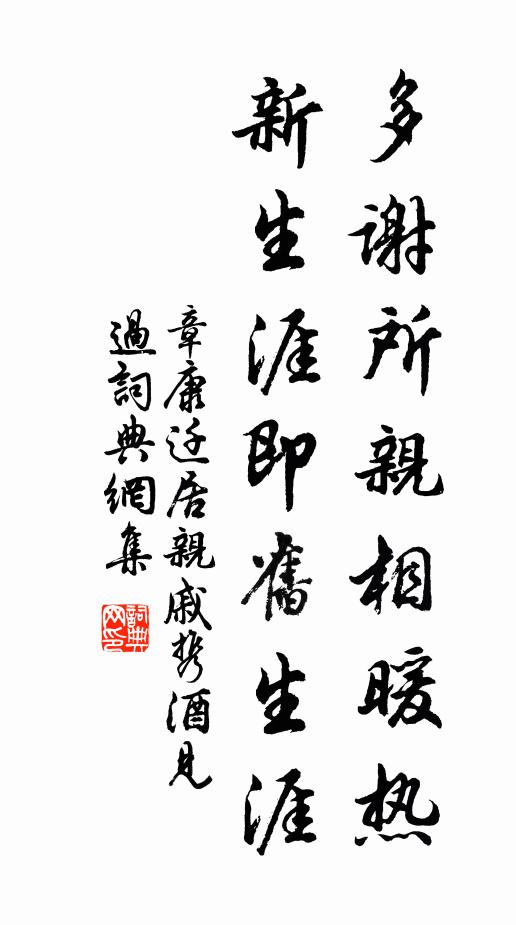 多谢所親相暖热
新生涯即舊生涯
章康迁居親戚携酒見
過詞典網集
詞典
网印